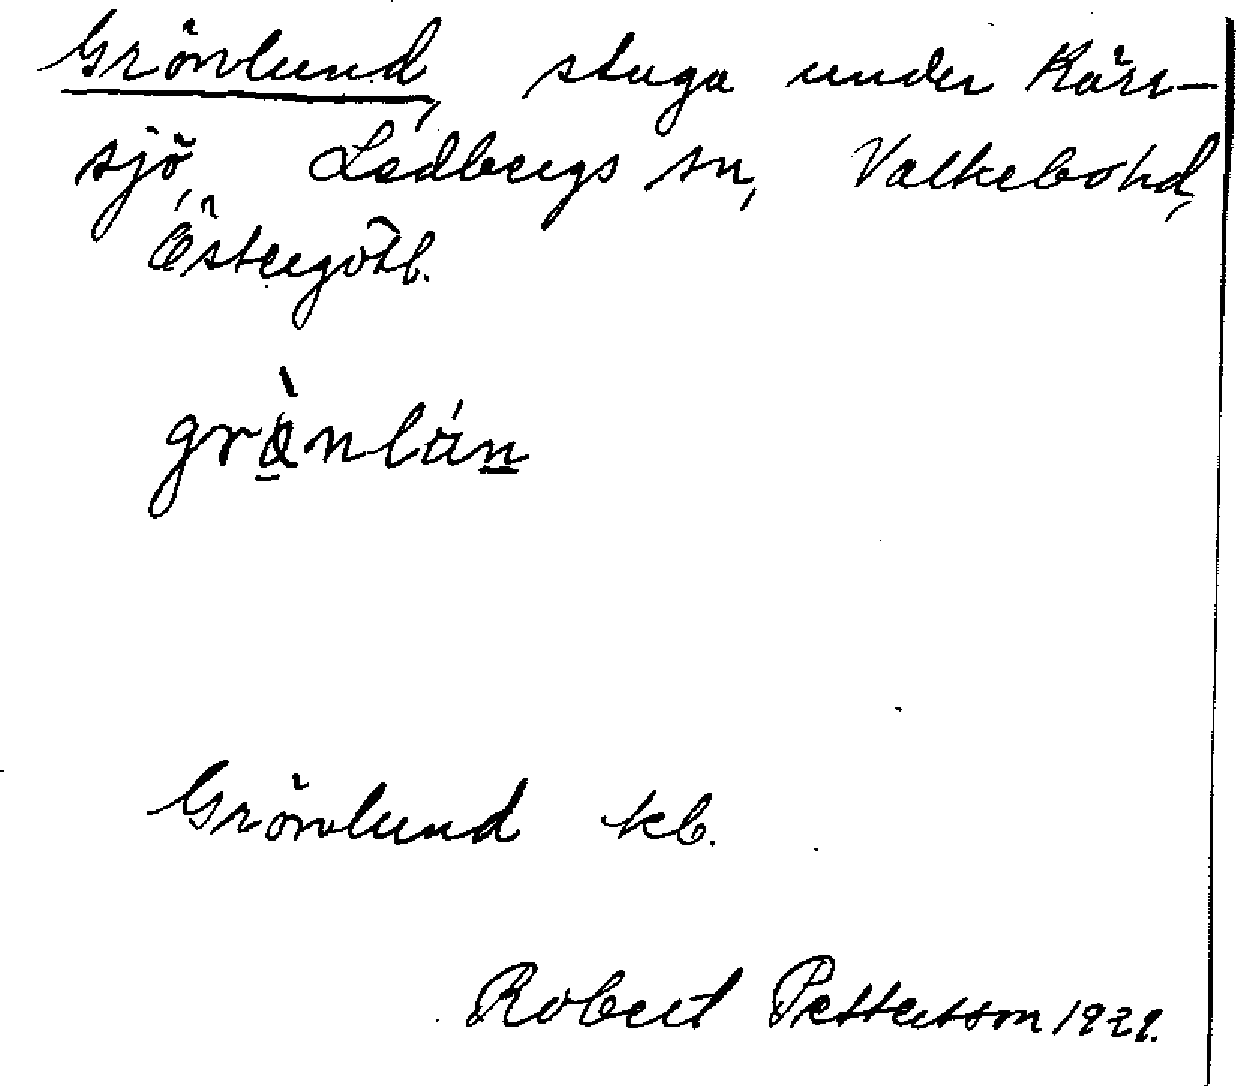 Grönlund, stuga under Kärr-
sjö, Ledbergs sn, Valkebo hd,
Östergötl.
grø̀nlún
Grönlund kb.
Robert Pettersson 1929.